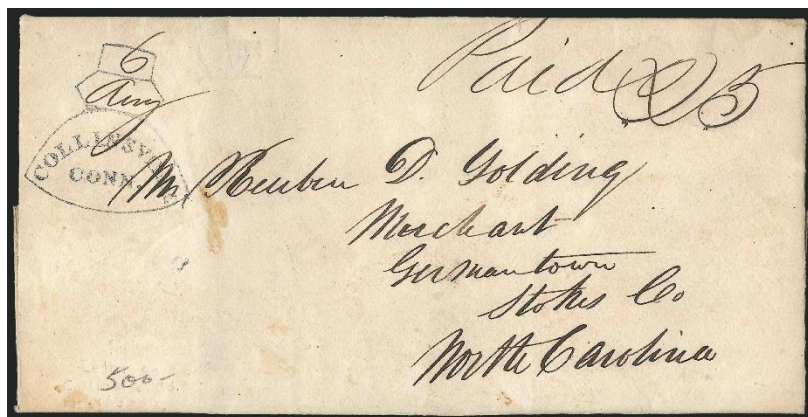 6
Aug
COLLINSVILLE
CONN.
Paid 25
Mr. Reuben D. Golding
Merchant
Germantown
Stokes Co
North Carolina
500-